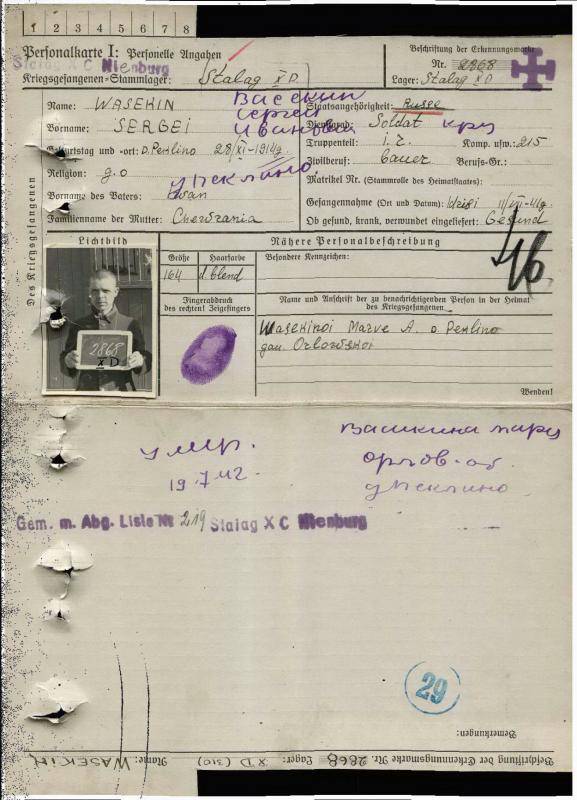 1 2 3 4 5 6 7 8
Personalkarte I: Personelle Angaben
Stalag X C Nienburg
Kriegsgefangenen-Stammlager: Stalag X D
Beschriftung der Erkennungsmarke
Nr. 2868
Lager: Stalag X D
Des Kriegsgefangenen
Name: WASEKIN
Васекин
Vorname: SERGEI
Сергей
Иванович
Geburtstag und -ort: D. Peklino 28/XI-1914g.
Religion: g.o
д Пеклино.
Vorname des Vaters: Iwan
Familienname der Mutter:
Staatsangehörigkeit: Russe
Dienstgrad: Soldat
Truppenteil: I.R. Komp. usw.: 215
Zivilberuf: Bauer Berufs-Gr.:
Matrikel Nr. (Stammrolle des Heimatstaates):
Gefangennahme (Ort und Datum):
Ob gesund, krank, verwundet eingeliefert: Gesund
16
Lichtbild
2868
X D
Größe Haarfarbe
164 d. blond
Fingerabdruck
des rechten! Zeigefingers
Nähere Personalbeschreibung
Besondere Kennzeichen:
Name und Anschrift der zu benachrichtigenden Person in der Heimat
des Kriegsgefangenen
Wasekinoi Marve A. D. Peklino
gau. Orlowskoi
Wenden!
умер.
19.7.42.
Орлов-об
д Пеклино
Gem. m. Abg. Liste Nr 219 Stalag X C Nienburg
29
Bemerkungen:
Beschriftung der Erkennungsmarke Nr. 2868 Lager: X D (310) Name: WASEKIN